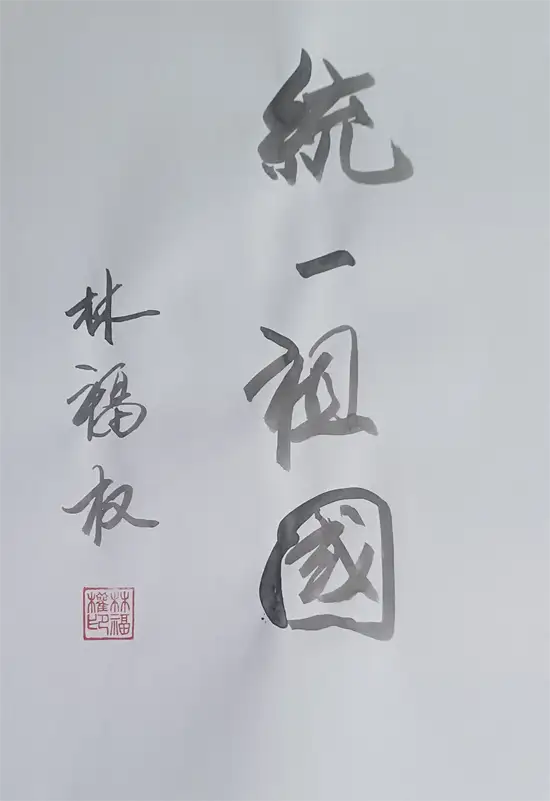 統一祖國
林福权
林福權印